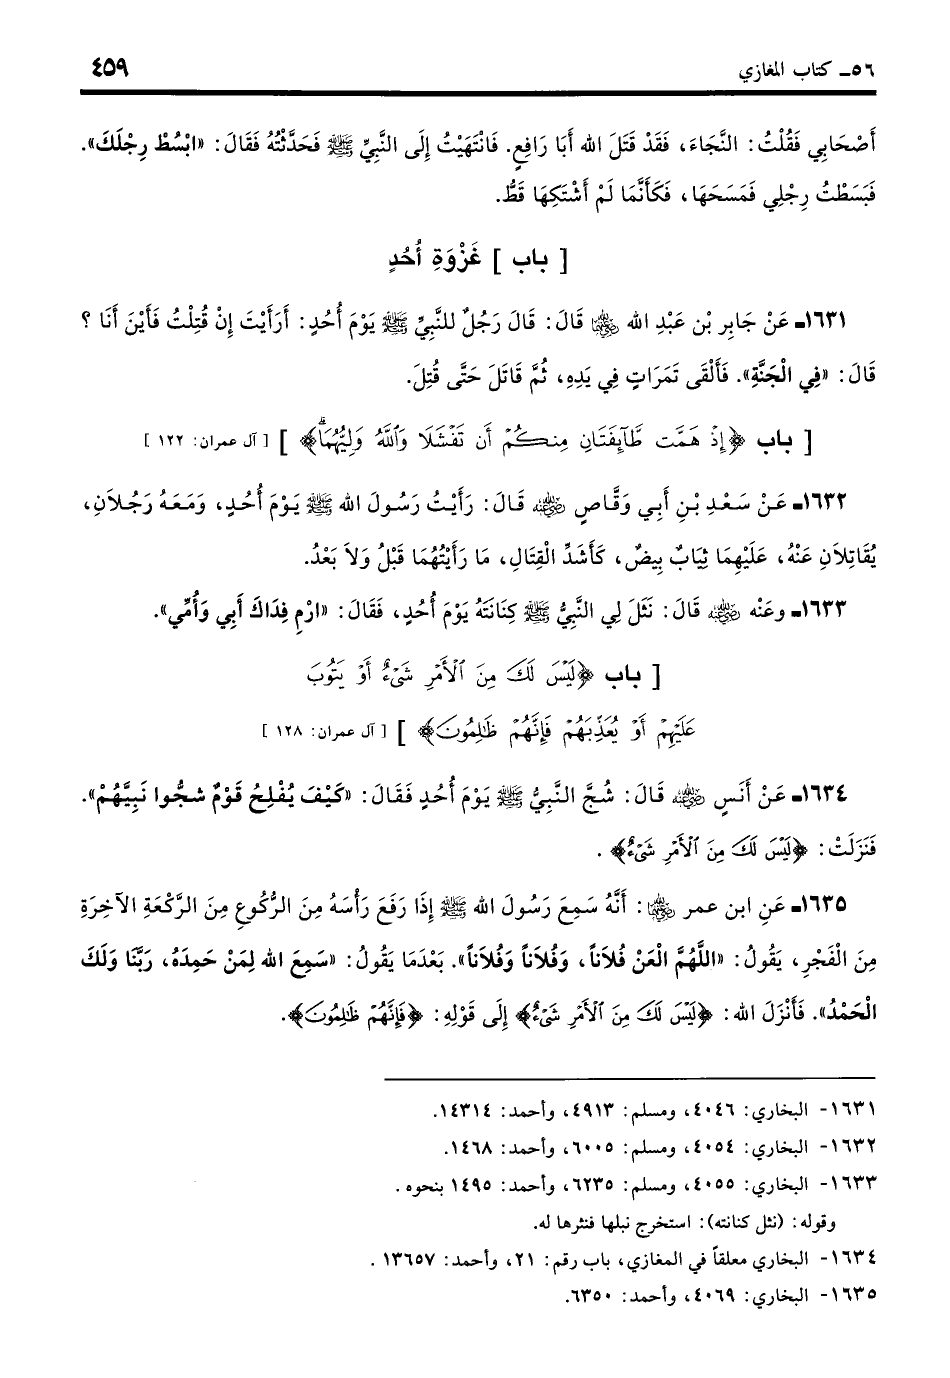 ٥٦ـ كتاب المغازي
٤٥٩
أَصْحَابِي فَقُلْتُ: النَّجَاءَ، فَقَدْ قَتَلَ الله أَبَا رَافِعٍ. فَانْتَهَيْتُ إِلَى النَّبِيِّ ﷺ فَحَدَّثْتُهُ فَقَالَ: «ابْسُطْ رِجْلَكَ».
فَبَسَطْتُ رِجْلِي فَمَسَحَهَا، فَكَأَنَّمَا لَمْ أَشْتَكِهَا قَطُّ.
[ باب ] غَزْوَةِ أُحُدٍ
١٦٣١ـ عَنْ جَابِر بْن عَبْدِ الله رضي الله عنهما قَالَ: قَالَ رَجُلٌ للنَّبِيِّ ﷺ يَوْمَ أُحُدٍ: أَرَأَيْتَ إِنْ قُتِلْتُ فَأَيْنَ أَنَا ؟
قَالَ: «فِي الْجَنَّةِ». فَأَلْقَى تَمَرَاتٍ فِي يَدِهِ، ثُمَّ قَاتَلَ حَتَّى قُتِلَ.
[ باب ﴿إِذْ هَمَّت طَّآئِفَتَانِ مِنكُمْ أَن تَفْشَلَا وَٱللَّهُ وَلِيُّهُمَاۗ﴾ ] [آل عمران: ١٢٢]
١٦٣٢ـ عَنْ سَعْدِ بْنِ أَبِي وَقَّاصٍ رضي الله عنه قَالَ: رَأَيْتُ رَسُولَ الله ﷺ يَوْمَ أُحُدٍ، وَمَعَهُ رَجُلاَنِ،
يُقَاتِلاَنِ عَنْهُ، عَلَيْهِمَا ثِيَابٌ بِيضٌ، كَأَشَدِّ الْقِتَالِ، مَا رَأَيْتُهُمَا قَبْلُ وَلاَ بَعْدُ.
١٦٣٣ـ وعَنْه رضي الله عنه قَالَ: نَثَلَ لِي النَّبِيُّ ﷺ كِنَانَتَهُ يَوْمَ أُحُدٍ، فَقَالَ: «ارْمِ فِدَاكَ أَبِي وَأُمِّي».
[ باب ﴿لَيْسَ لَكَ مِنَ ٱلْأَمْرِ شَىْءٌ أَوْ يَتُوبَ
عَلَيْهِمْ أَوْ يُعَذِّبَهُمْ فَإِنَّهُمْ ظَٰلِمُونَ﴾ ] [آل عمران: ١٢٨]
١٦٣٤ـ عَنْ أَنَسٍ رضي الله عنه قَالَ: شُجَّ النَّبِيُّ ﷺ يَوْمَ أُحُدٍ فَقَالَ: «كَيْفَ يُفْلِحُ قَوْمٌ شجُّوا نَبِيَّهُمْ».
فَنَزَلَتْ: ﴿لَيْسَ لَكَ مِنَ ٱلْأَمْرِ شَىْءٌ﴾ .
١٦٣٥ـ عَنِ ابن عمر رضي الله عنهما: أَنَّهُ سَمِعَ رَسُولَ الله ﷺ إِذَا رَفَعَ رَأْسَهُ مِنَ الرُّكُوعِ مِنَ الرَّكْعَةِ الآخِرَةِ
مِنَ الْفَجْرِ، يَقُولُ: «اللَّهُمَّ الْعَنْ فُلاَناً، وَفُلاَناً وَفُلاَناً». بَعْدَمَا يَقُولُ: «سَمِعَ الله لِمَنْ حَمِدَهُ، رَبَّنَا وَلَكَ
الْحَمْدُ». فَأَنْزَلَ الله: ﴿لَيْسَ لَكَ مِنَ ٱلْأَمْرِ شَىْءٌ﴾ إِلَى قَوْلِهِ: ﴿فَإِنَّهُمْ ظَٰلِمُونَ﴾.
١٦٣١- البخاري: ٤٠٤٦، ومسلم: ٤٩١٣، وأحمد: ١٤٣١٤.
١٦٣٢- البخاري: ٤٠٥٤، ومسلم: ٦٠٠٥، وأحمد: ١٤٦٨.
١٦٣٣- البخاري: ٤٠٥٥، ومسلم: ٦٢٣٥، وأحمد: ١٤٩٥ بنحوه .
وقوله: (نثل كنانته): استخرج نبلها فنثرها له.
١٦٣٤- البخاري معلقاً في المغازي، باب رقم: ٢١، وأحمد: ١٣٦٥٧ .
١٦٣٥- البخاري: ٤٠٦٩، وأحمد: ٦٣٥٠.